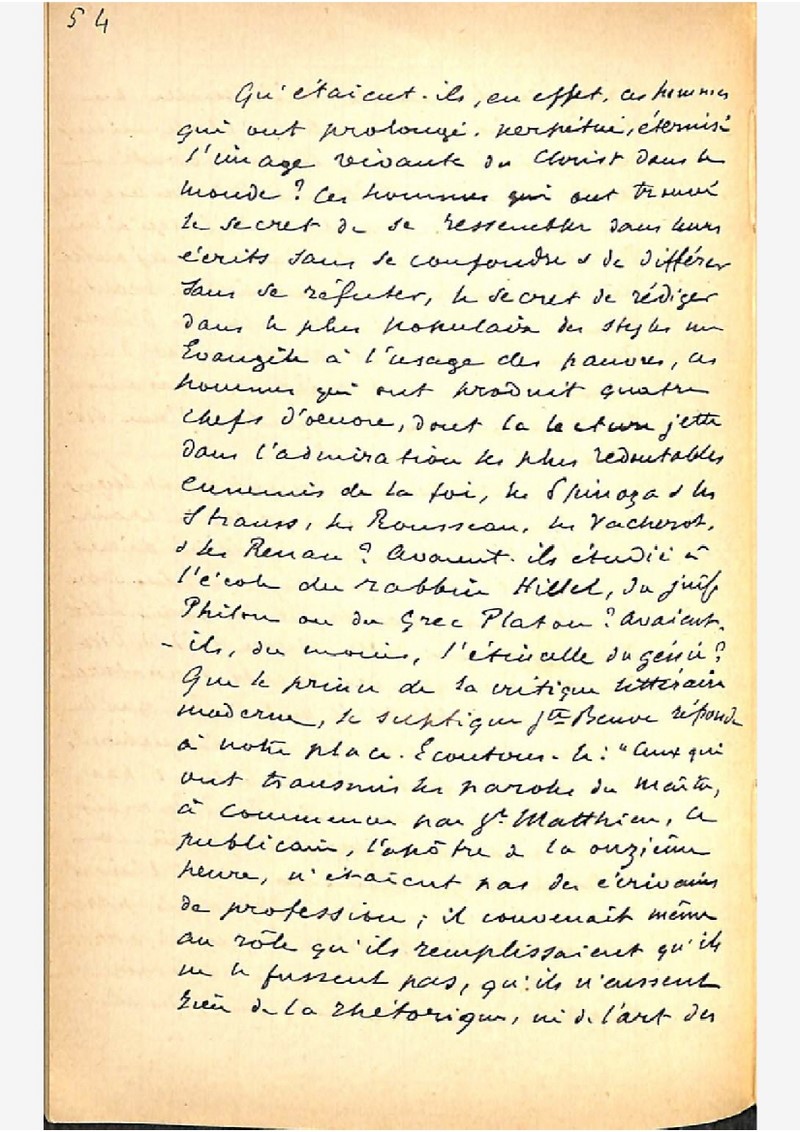 54
Qu'étaient-ils, en effet, ces hommes
qui ont prolongé, perpétué, éternisé
l'image vivante du Christ dans le
monde ? Ces hommes qui ont trouvé
le secret de se ressembler dans leurs
écrits sans se confondre & de différer
sans se réfuter, le secret de rédiger
dans le plus populaire des styles un
Evangile à l'usage des pauvres, ces
hommes qui ont produit quatre
chefs d'oeuvre, dont la lecture jette
dans l'admiration les plus redoutables
ennemis de la foi, les Spinoza & les
Strauss, les Rousseau, les Vacherot,
& les Renan ? Avaient-ils étudié à
l'école du rabbin Hillel, du juif
Philon ou du Grec Platon ? Avaient-
-ils, du moins, l'étincelle du génie ?
Que le prince de la critique littéraire
moderne, le sceptique Ste Beuve réponde
à notre place. Ecoutons-le : "Ceux qui
ont transmis les paroles du Maître,
à commencer par St Matthieu, le
publicain, l'apôtre de la onzième
heure, n'étaient pas des écrivains
de profession ; il convenait même
au rôle qu'ils remplissaient qu'ils
ne le fussent pas, qu'ils n'eussent
rien de la rhétorique, ni de l'art des